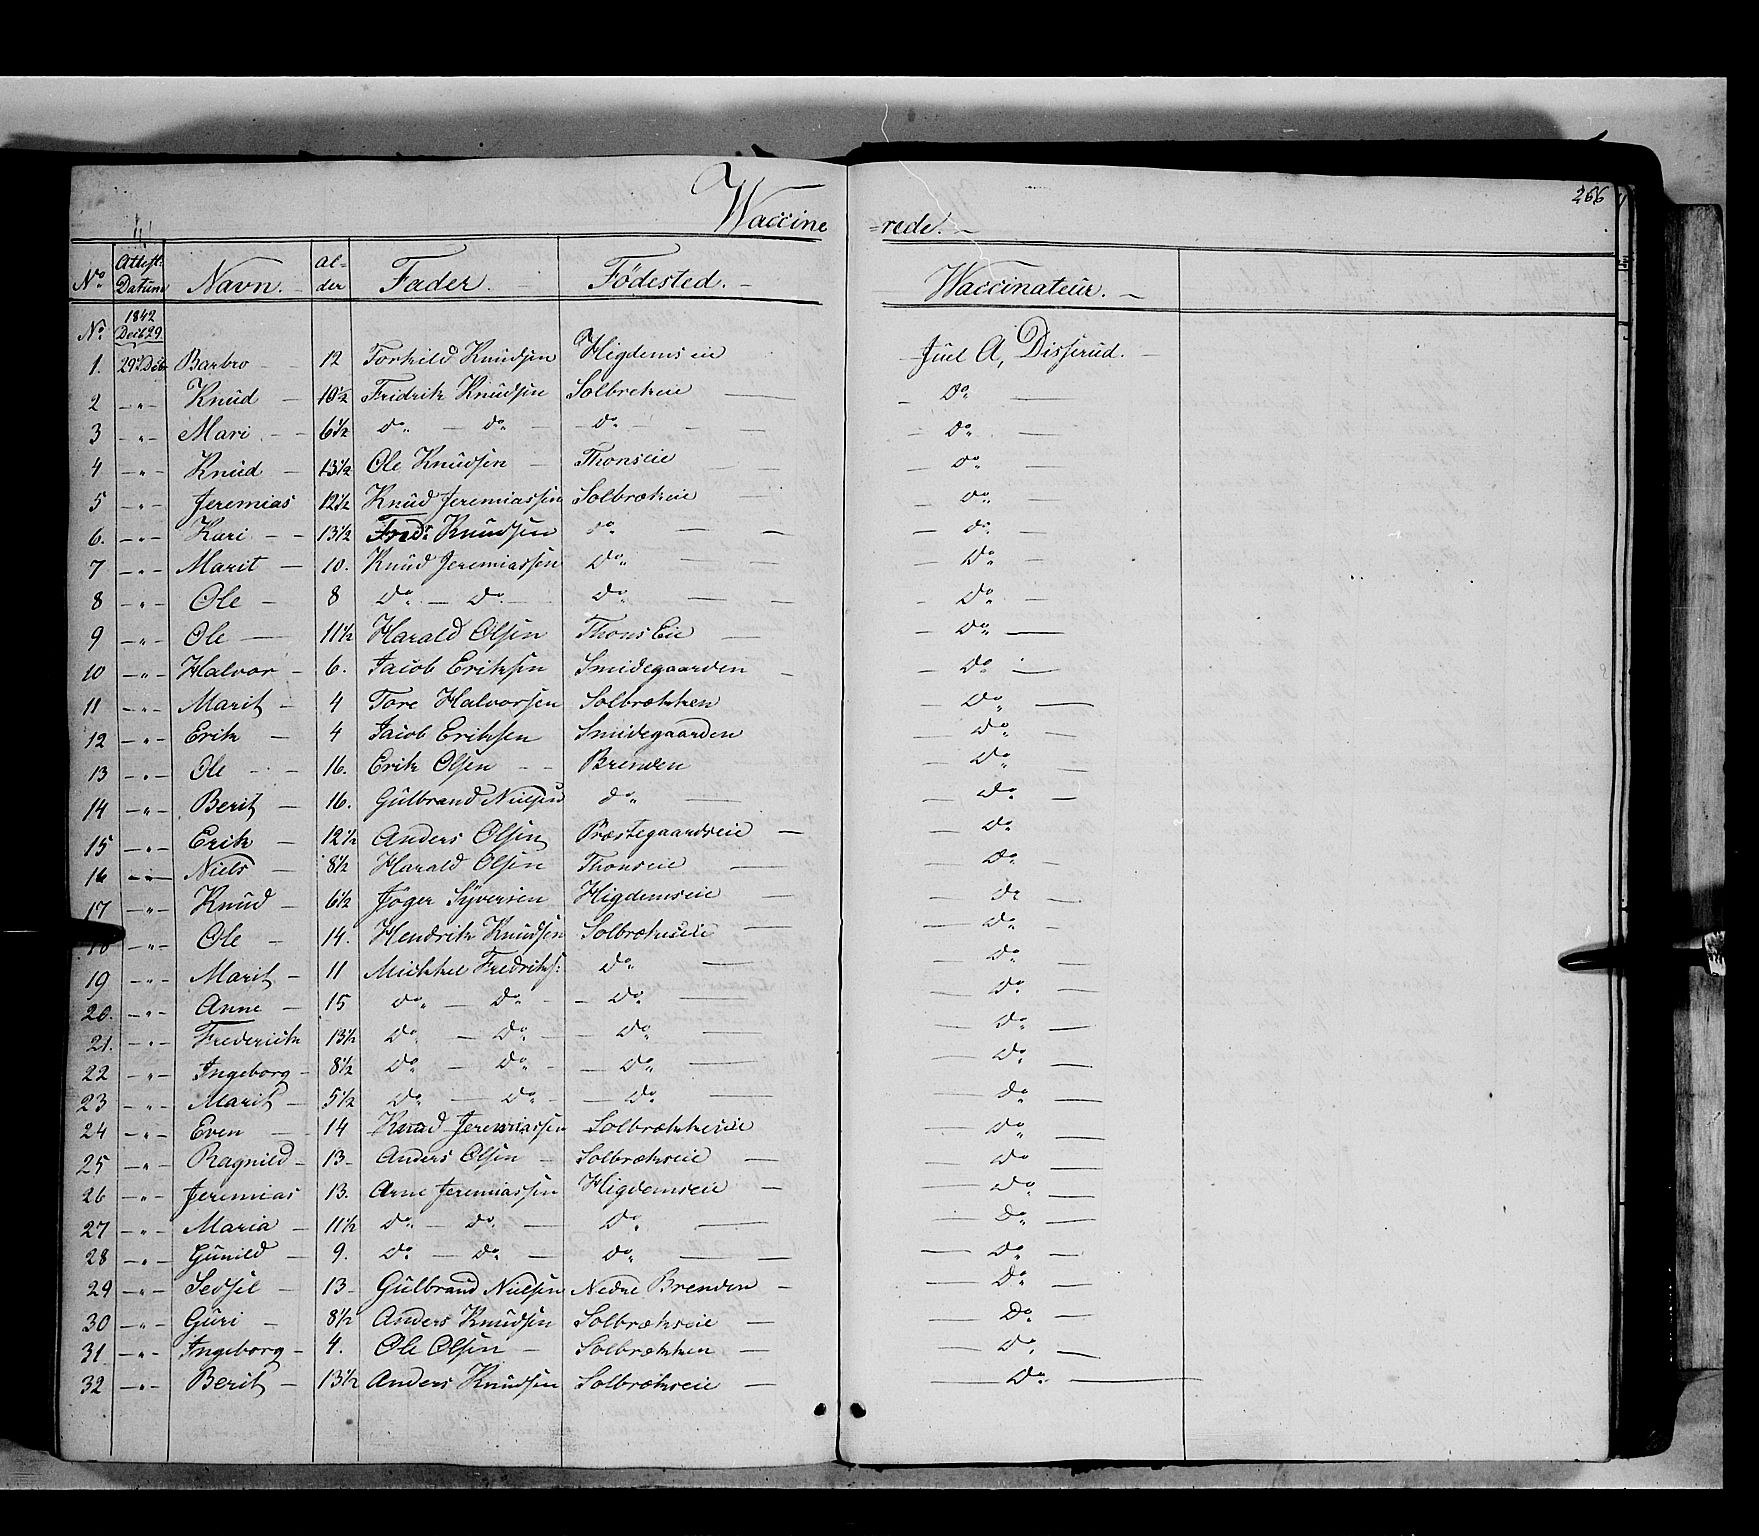 266
Waccine =rede.
No Attest. Datum Navn. Al-der Fader. Fødested. Waccinateur.
No 1842 Decb 29
1. 29de Decb Barbro 12 Torkild Knudsen Higdems eie Juel A, Disserud.
2 " Knud 10½ Fridrik Knudsen Solbrekeie do
3 " Mari 6½ do do do do
4 " Knud 13½ Ole Knudsen Thonseie do
5 " Jeremias 12½ Knud Jeremiassen Solbrækeie do
6. " Kari 13½ Fredr Knudsen do do
7 " Marit 10. Knud Jeremiassen do do
8 " Ole 8 do do do do
9 " Ole 11½ Harald Olsen Thons Eie do
10 " Halvor 6. Jacob Eriksen Smidegaarden do
11 " Marit 4 Tore Halvorsen Solbrækken do
12 " Erik 4 Jacob Eriksen Smidegaarden do
13 " Ole 16. Erik Olsen Brenden do
14 " Berit 16. Gulbrand Nielsen do do
15 " Erik 12½ Anders Olsen Præstegaardseie do
16 " Niels 8½ Harald Olsen Thonseie do
17 " Knud 6½ Jøger Syversen Higdemseie do
18 " Ole 14. Hendrik Knudsen Solbrækseie do
19 " Marit 11 Mikkel Fredriks: do do
20. " Anne 15 do do do do
21. " Frederick 13½ do do do do
22 " Ingeborg 8½ do do do do
23 " Marit 5½ do do do do
24 " Even 14 Knud Jeremiassen Solbrækkeeie do
25 " Ragnild 13 Anders Olsen Solbrækseie do
26 " Jeremias 13. Arne Jeremiassen Higdemseie do
27 " Maria 11½ do do do do
28 " Gunild 9. do do do do
29 " Sedsel 13 Gulbrand Nielsen Nedre Brenden do
30 " Guri 8½ Anders Knudsen Solbrækseie do
31 " Ingeborg 4. Ole Olsen Solbrækken do
32 " Berit 13½ Anders Knudsen Solbrækseie do